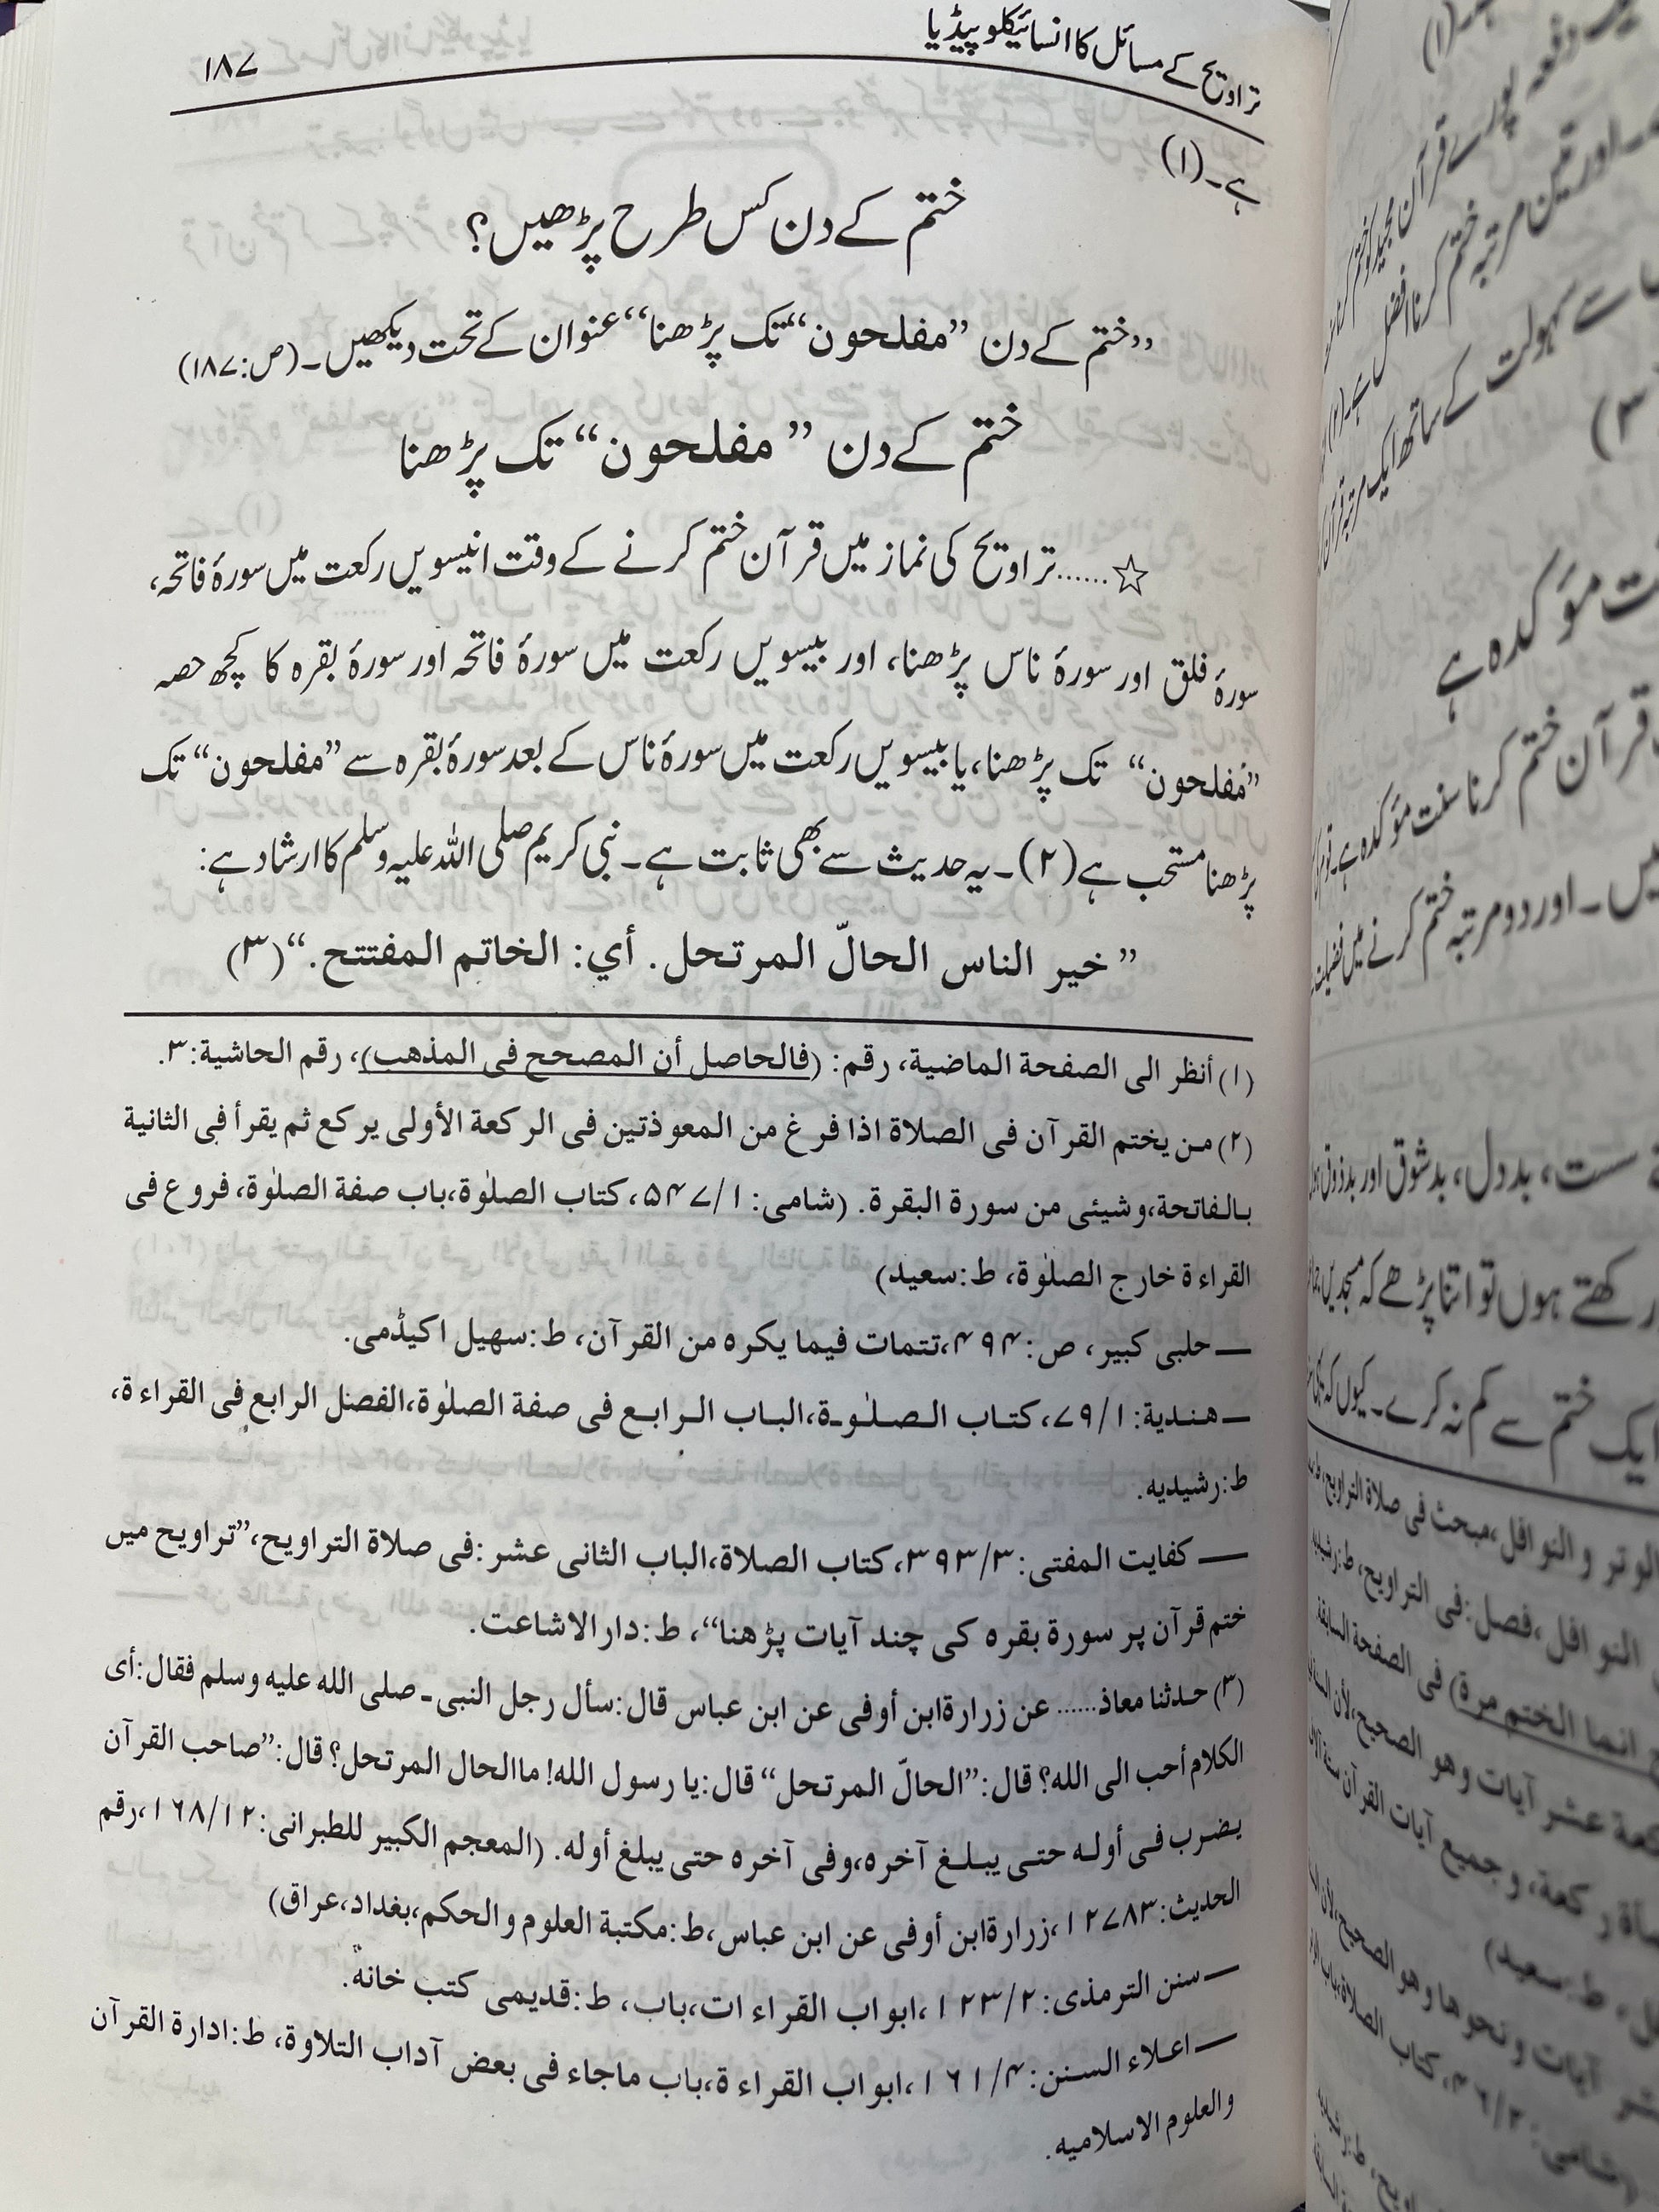 تراویح کے مسائل کا انسائیکلوپیڈیا ۱۸۷
ہے۔(۱)
ختم کے دن کس طرح پڑھیں؟
”ختم کے دن ”مفلحون“ تک پڑھنا“ عنوان کے تحت دیکھیں۔(ص:۱۸۷)
ختم کے دن ”مفلحون“ تک پڑھنا
☆......تراویح کی نماز میں قرآن ختم کرنے کے وقت انیسویں رکعت میں سورۂ فاتحہ،
سورۂ فلق اور سورۂ ناس پڑھنا، اور بیسویں رکعت میں سورۂ فاتحہ اور سورۂ بقرہ کا کچھ حصہ
”مفلحون“ تک پڑھنا، یا بیسویں رکعت میں سورۂ ناس کے بعد سورۂ بقرہ سے ”مفلحون“ تک
پڑھنا مستحب ہے(۲)۔ یہ حدیث سے بھی ثابت ہے۔ نبی کریم صلی اللہ علیہ وسلم کا ارشاد ہے:
”خير الناس الحالّ المرتحل. أي: الخاتم المفتتح.“(۳)
(۱) أنظر الى الصفحة الماضية، رقم: (فالحاصل أن المصحح فى المذهب)، رقم الحاشية:۳.
(۲) من يختم القرآن فى الصلاة اذا فرغ من المعوذتين فى الركعة الأولى يركع ثم يقرأ فى الثانية
بالفاتحة،وشيئى من سورة البقرة. (شامى: ۱/۵۴۷، كتاب الصلوٰة،باب صفة الصلوٰة، فروع فى
القراءة خارج الصلوٰة، ط:سعيد)
— حلبى كبير، ص:۴۹۴،تتمات فيما يكره من القرآن، ط:سهيل اكيڈمى.
— هندية: ۱/۷۹، كتاب الصلوٰة،الباب الرابع فى صفة الصلوٰة،الفصل الرابع فى القراءة،
ط:رشيديه.
— كفايت المفتى:۳/۳۹۳، كتاب الصلاة،الباب الثانى عشر:فى صلاة التراويح،”تراويح ميں
ختم قرآن پر سورة بقره كى چند آيات پڑهنا“، ط:دارالاشاعت.
(۳) حدثنا معاذ...... عن زرارةابن أوفى عن ابن عباس قال:سأل رجل النبى ـ صلى الله عليه وسلم فقال:أى
الكلام أحب الى الله؟ قال:”الحالّ المرتحل“ قال:يا رسول الله! ماالحال المرتحل؟ قال:”صاحب القرآن
يضرب فى أوله حتى يبلغ آخره،وفى آخره حتى يبلغ أوله. (المعجم الكبير للطبرانى:۱۲/۱۶۸،رقم
الحديث:۱۲۷۸۳،زرارةابن أوفى عن ابن عباس،ط:مكتبة العلوم والحكم،بغداد،عراق)
— سنن الترمذى:۲/۱۲۳،ابواب القراء ات،باب، ط:قديمى كتب خانه.
— اعلاء السنن:۴/۱۶۱،ابواب القراءة،باب ماجاء فى بعض آداب التلاوة، ط:ادارة القرآن
والعلوم الاسلاميه.